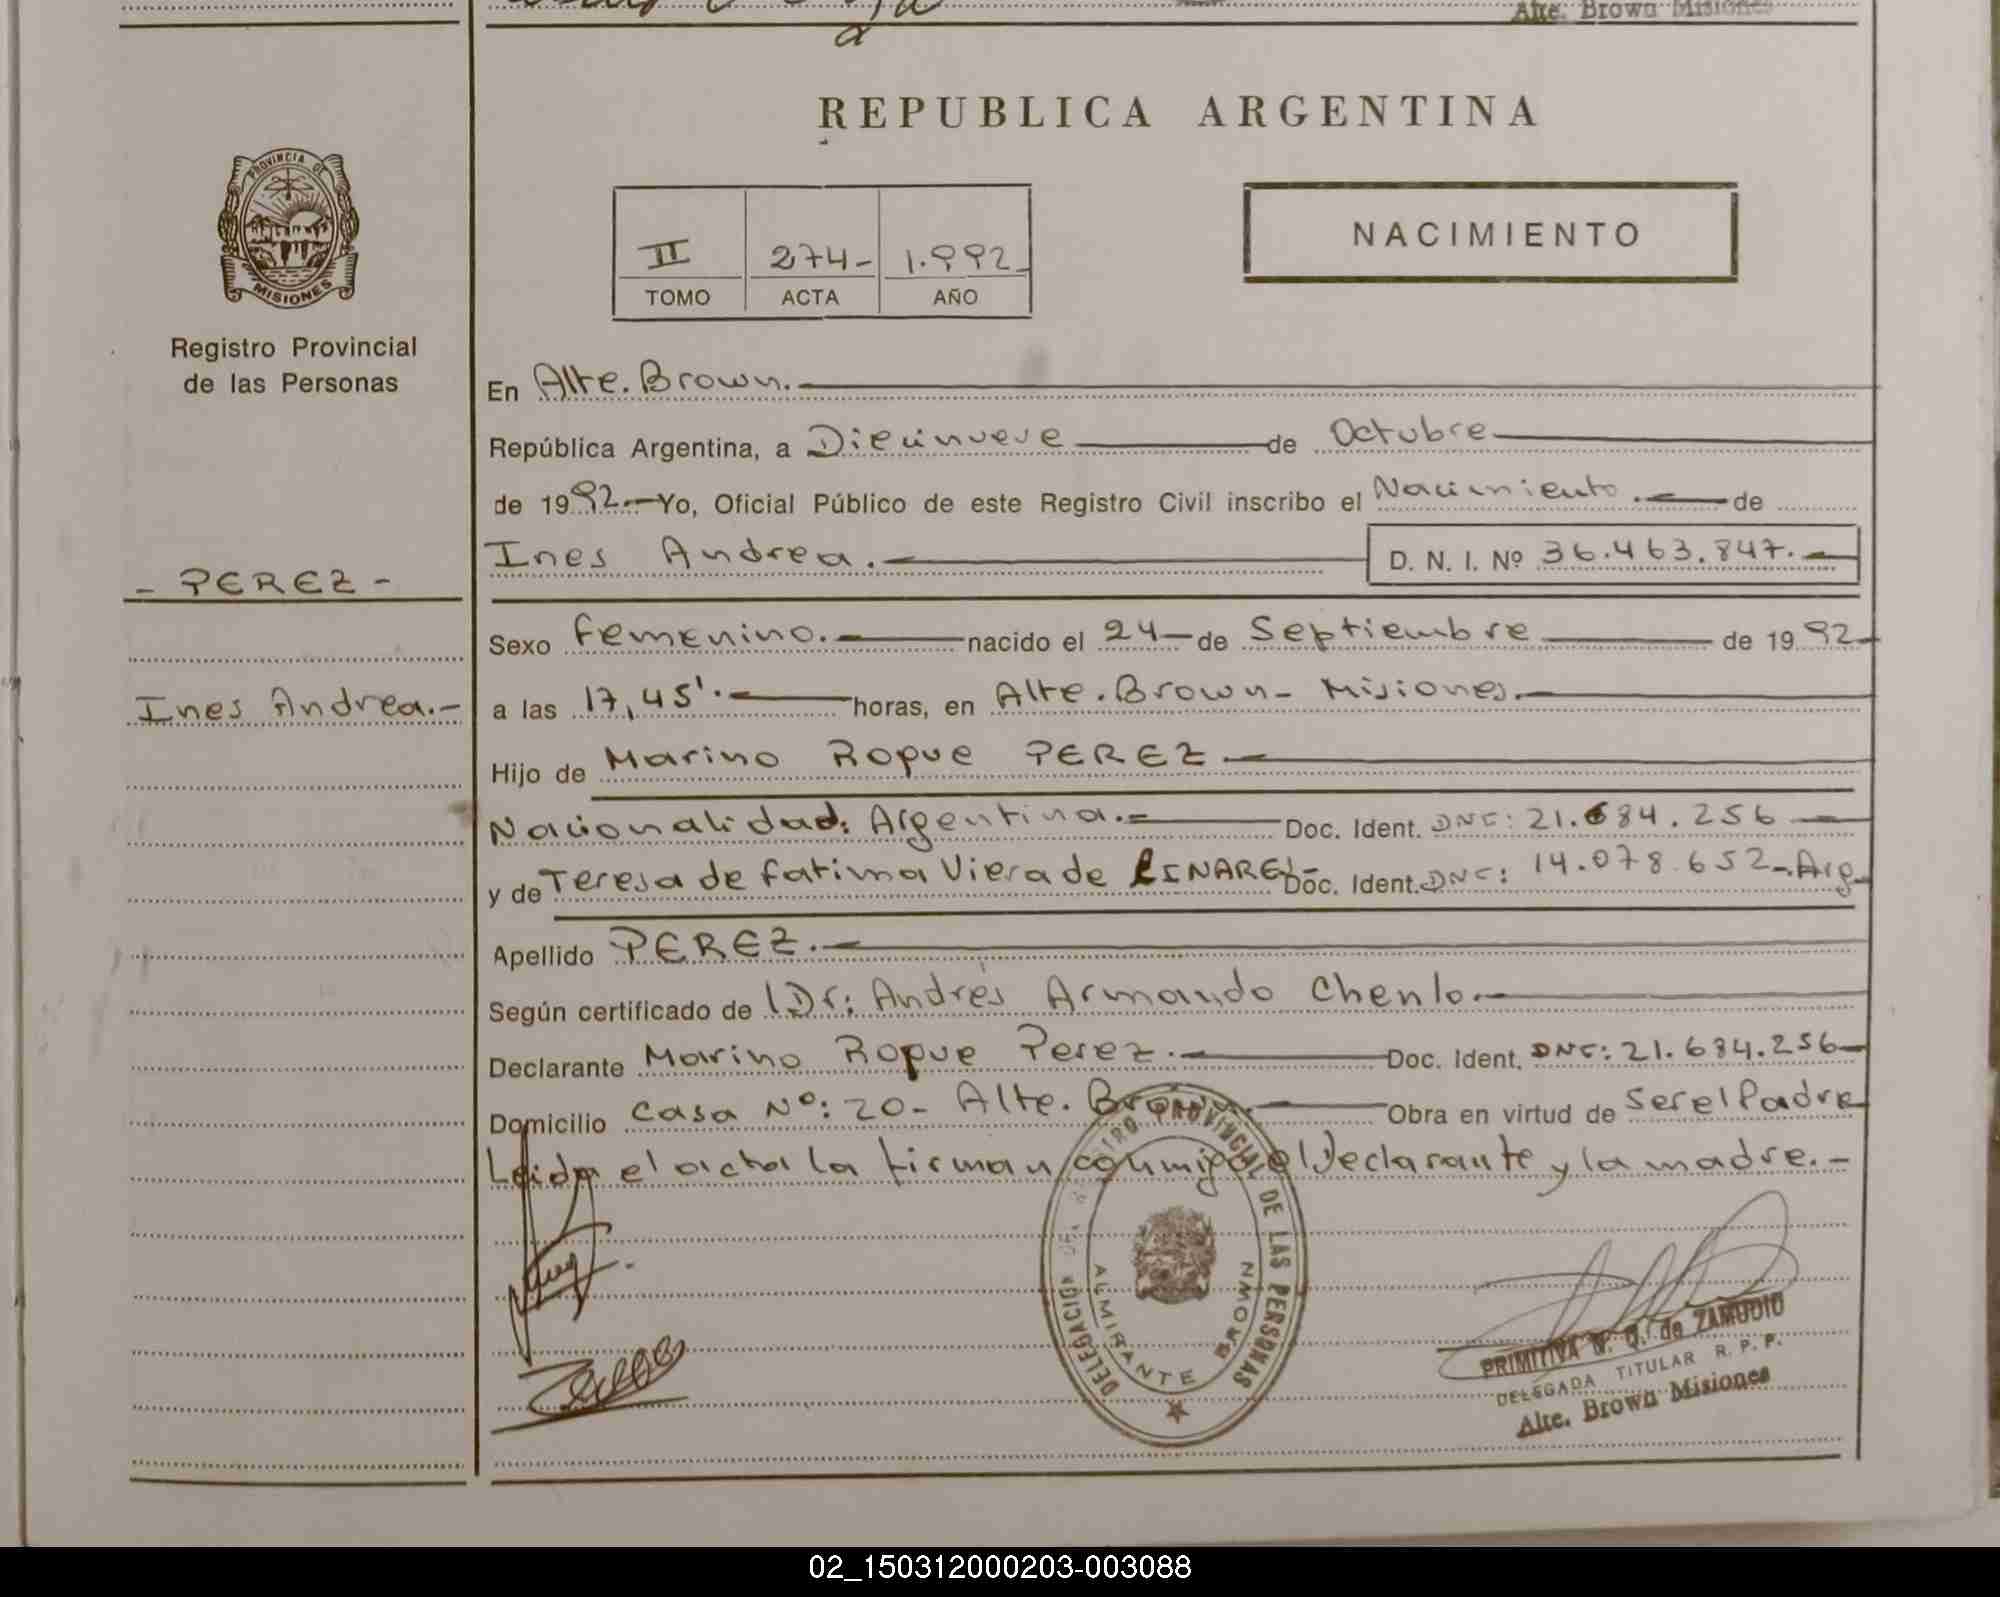 Alte. Brown Misiones
REPUBLICA ARGENTINA
PROVINCIA DE
MISIONES
Registro Provincial
de las Personas
II 274- 1.992
TOMO ACTA AÑO
NACIMIENTO
En Alte. Brown.
República Argentina, a Diecinueve de Octubre
de 1992.- Yo, Oficial Público de este Registro Civil inscribo el Nacimiento. de
Ines Andrea. D. N. I. Nº 36.463.847.
- PEREZ -
Sexo femenino. nacido el 24 de Septiembre de 1992
Ines Andrea.-
a las 17,45'. horas, en Alte. Brown - Misiones.
Hijo de Marino Roque PEREZ
Nacionalidad: Argentina.= Doc. Ident. DNI: 21.684.256
y de Teresa de fatima Viera de LINARES- Doc. Ident. DNI: 14.078.652-Arg
Apellido PEREZ.
Según certificado de Dr: Andrés Armando Chenlo.
Declarante Marino Roque Perez. Doc. Ident. DNI: 21.684.256
Domicilio Casa Nº: 20- Alte. Brown. Obra en virtud de Ser el Padre
Leida el acta la firman conmigo el Declarante y la madre.-
DELEGACION DEL REGISTRO PROVINCIAL DE LAS PERSONAS
ALMIRANTE BROWN
PRIMITIVA de ZAMUDIO
DELEGADA TITULAR R. P. P.
Alte. Brown Misiones
02_150312000203-003088